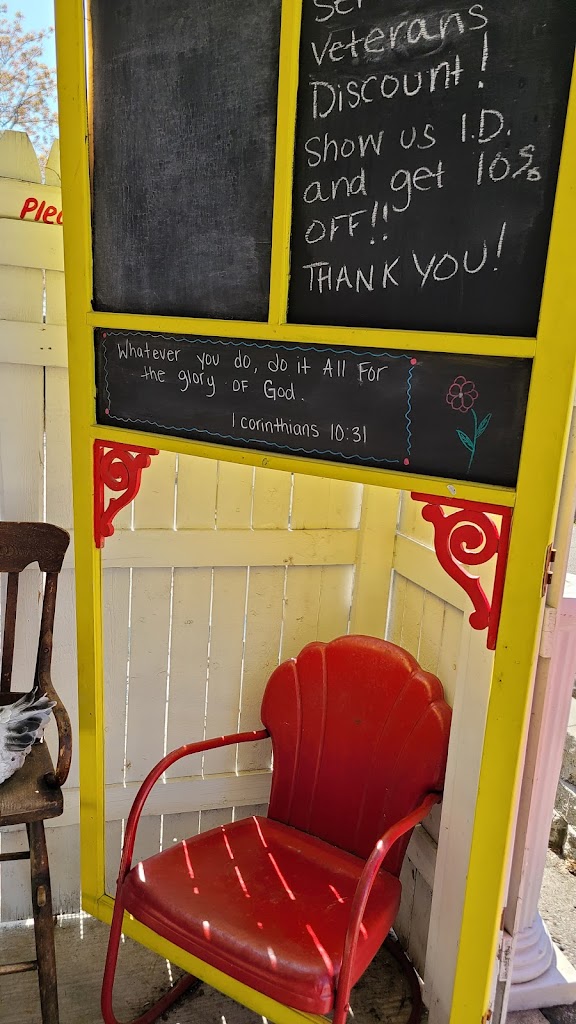 Veterans
Discount!
Show us I.D.
and get 10%
OFF!!
THANK YOU!
Whatever you do, do it All For
the glory of God.
1 corinthians 10:31